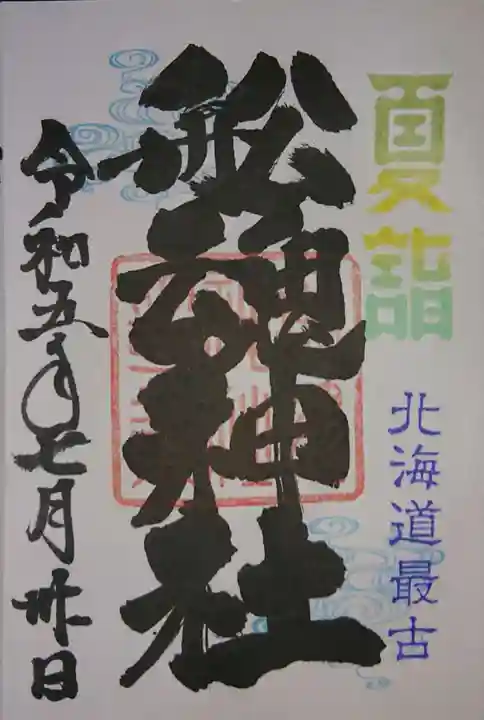 夏詣
北海道最古
船魂神社
令和五年七月卅日